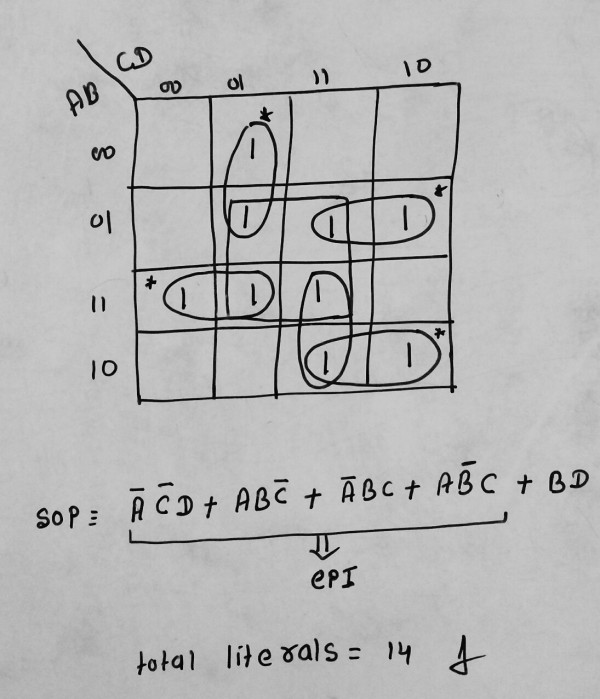 CD
AB 00 01 11 10
*
00 1
*
01 1 1 1
*
11 1 1 1
*
10 1 1
SOP ≡ A̅ C̅ D + A B C̅ + A̅ B C + A B̅ C + B D
⇓
EPI
total literals = 14